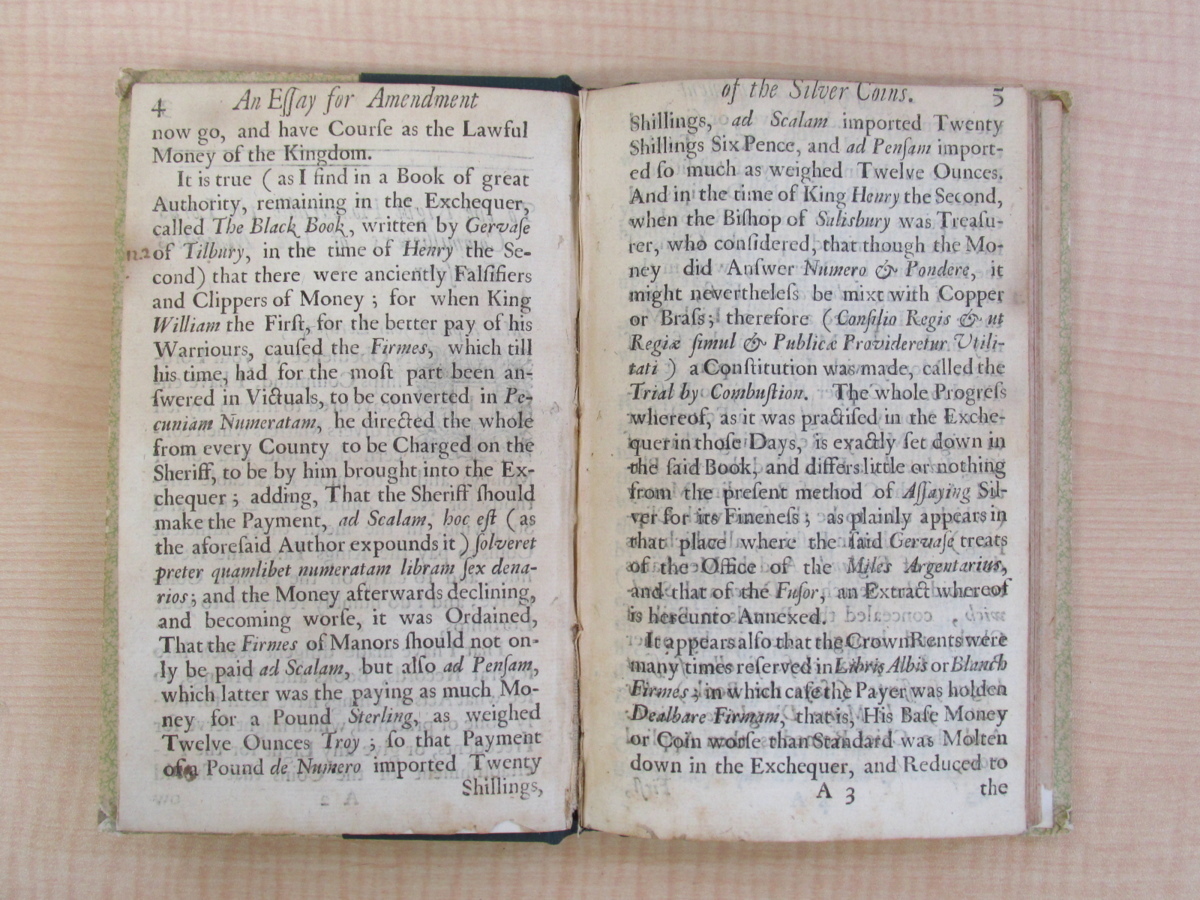 4 An Eſſay for Amendment
now go, and have Courſe as the Lawful
Money of the Kingdom.
It is true ( as I find in a Book of great
Authority, remaining in the Exchequer,
called The Black Book, written by Gervaſe
of Tilbury, in the time of Henry the Se-
cond) that there were anciently Falſifiers
and Clippers of Money ; for when King
William the Firſt, for the better pay of his
Warriours, cauſed the Firmes, which till
his time, had for the moſt part been an-
ſwered in Victuals, to be converted in Pe-
cuniam Numeratam, he directed the whole
from every County to be Charged on the
Sheriff, to be by him brought into the Ex-
chequer ; adding, That the Sheriff ſhould
make the Payment, ad Scalam, hoc eſt ( as
the aforeſaid Author expounds it ) ſolveret
preter quamlibet numeratam libram ſex dena-
rios ; and the Money afterwards declining,
and becoming worſe, it was Ordained,
That the Firmes of Manors ſhould not on-
ly be paid ad Scalam, but alſo ad Penſam,
which latter was the paying as much Mo-
ney for a Pound Sterling, as weighed
Twelve Ounces Troy ; ſo that Payment
of a Pound de Numero imported Twenty
Shillings,
of the Silver Coins. 5
Shillings, ad Scalam imported Twenty
Shillings Six Pence, and ad Penſam import-
ed ſo much as weighed Twelve Ounces.
And in the time of King Henry the Second,
when the Biſhop of Salisbury was Treaſu-
rer, who conſidered, that though the Mo-
ney did Anſwer Numero & Pondere, it
might nevertheleſs be mixt with Copper
or Braſs ; therefore ( Conſilio Regis & ut
Regiæ ſimul & Publicæ Provideretur Utili-
tati ) a Conſtitution was made, called the
Trial by Combuſtion. The whole Progreſs
whereof, as it was practiſed in the Exche-
quer in thoſe Days, is exactly ſet down in
the ſaid Book, and differs little or nothing
from the preſent method of Aſſaying Sil-
ver for its Fineneſs ; as plainly appears in
that place where the ſaid Gervaſe treats
of the Office of the Miles Argentarius,
and that of the Fuſor, an Extract whereof
is hereunto Annexed.
It appears alſo that the Crown Rents were
many times reſerved in Libris Albis or Blanch
Firmes ; in which caſe the Payer was holden
Dealbare Firmam, that is, His Baſe Money
or Coin worſe than Standard was Molten
down in the Exchequer, and Reduced to
A 3 the